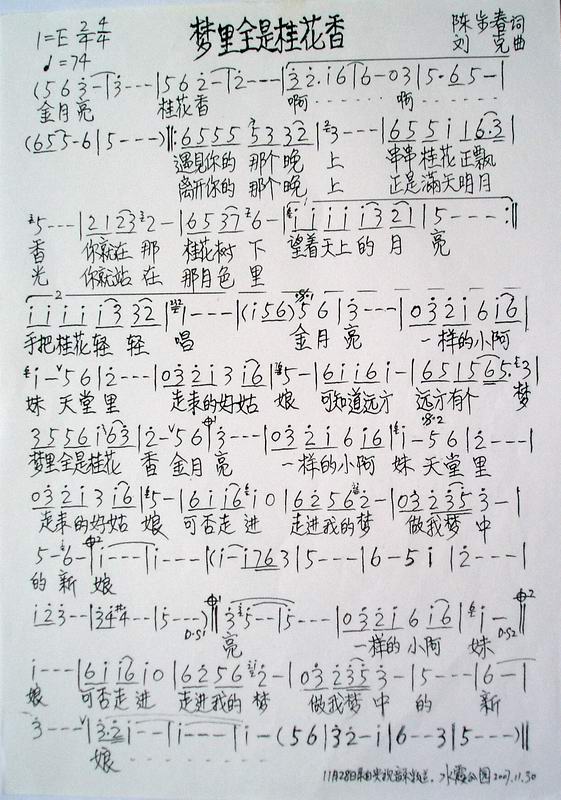 梦里全是桂花香
1=E 2/4 4/4
♩=74
陈步春词
刘克曲
(5 6 3 - | 3 - - - | 5 6 2 - | 2 - - - | 3 2 · i 6 | 6 - 0 3 | 5 · 6 5 - |
金月亮 桂花香 啊 啊
(6 5 5 - 6 | 5 - - - ) ‖: 6 5 5 5 5 3 3 2 | 3 - - - | 6 5 5 i i 6·3 |
遇見你的 那个晚 上 串串桂花正飘
离开你的 那个晚 上 正是滿天明月
5 - - - | 2 1 2 3 2 - | 6 5 3 7 6 - | i i i i i 3 2 1 | 5 - - - :‖
香 你就在 那 桂花树 下 望着天上的 月 亮
光 你就站 在 那月色 里
i i i i i 3 3 2 | i - - - | (i 5 6) 5 6 | 3 - - - | 0 3 2 i 6 i 6 |
手把桂花轻 轻 唱 金月亮 一样的小阿
i - 5 6 | 2 - - - | 0 3 2 i 3 i 6 | 5 - | 6 i i 6 i - | 6 5 1 5 6 5 · 3 |
妹 天堂里 走来的好姑 娘 可知道远方 远方有个 梦
3 5 5 6 i 6 3 | 2 - 5 6 | 3 - - - | 0 3 2 i 6 i 6 | i - 5 6 | 2 - - - |
梦里全是桂花 香 金月亮 一样的小阿 妹 天堂里
0 3 2 i 3 i 6 | 5 - | 6 i i 6 i 0 | 6 2 5 6 2 - | 0 3 2 3 5 3 - |
走来的好姑 娘 可否走 进 走进我的 梦 做我梦 中
5 - 6 - | i - - - | i - - - | (i - i 7 6 3 | 5 - - - | 6 - 5 i | 2 - - - |
的 新 娘
i 2 3 - - | 3 4 #4 - - | 5 - - - ) ‖ 3 5 - - | 5 - - - | 0 3 2 i 6 i 6 | i - ‖
D·S1 亮 一样的小阿 妹 D·S2
i - - - | 6 i i 6 i 0 | 6 2 5 6 2 - | 0 3 2 3 5 3 - | 5 - - - | 6 - |
娘 可否走 进 走进我的 梦 做我梦 中 的 新
3 - - - | 3 · 2 i - - | i - - - | i - (5 6 | 3 2 - i | 6 - - 3 | 5 - - - ) ‖
娘
2007.11.30